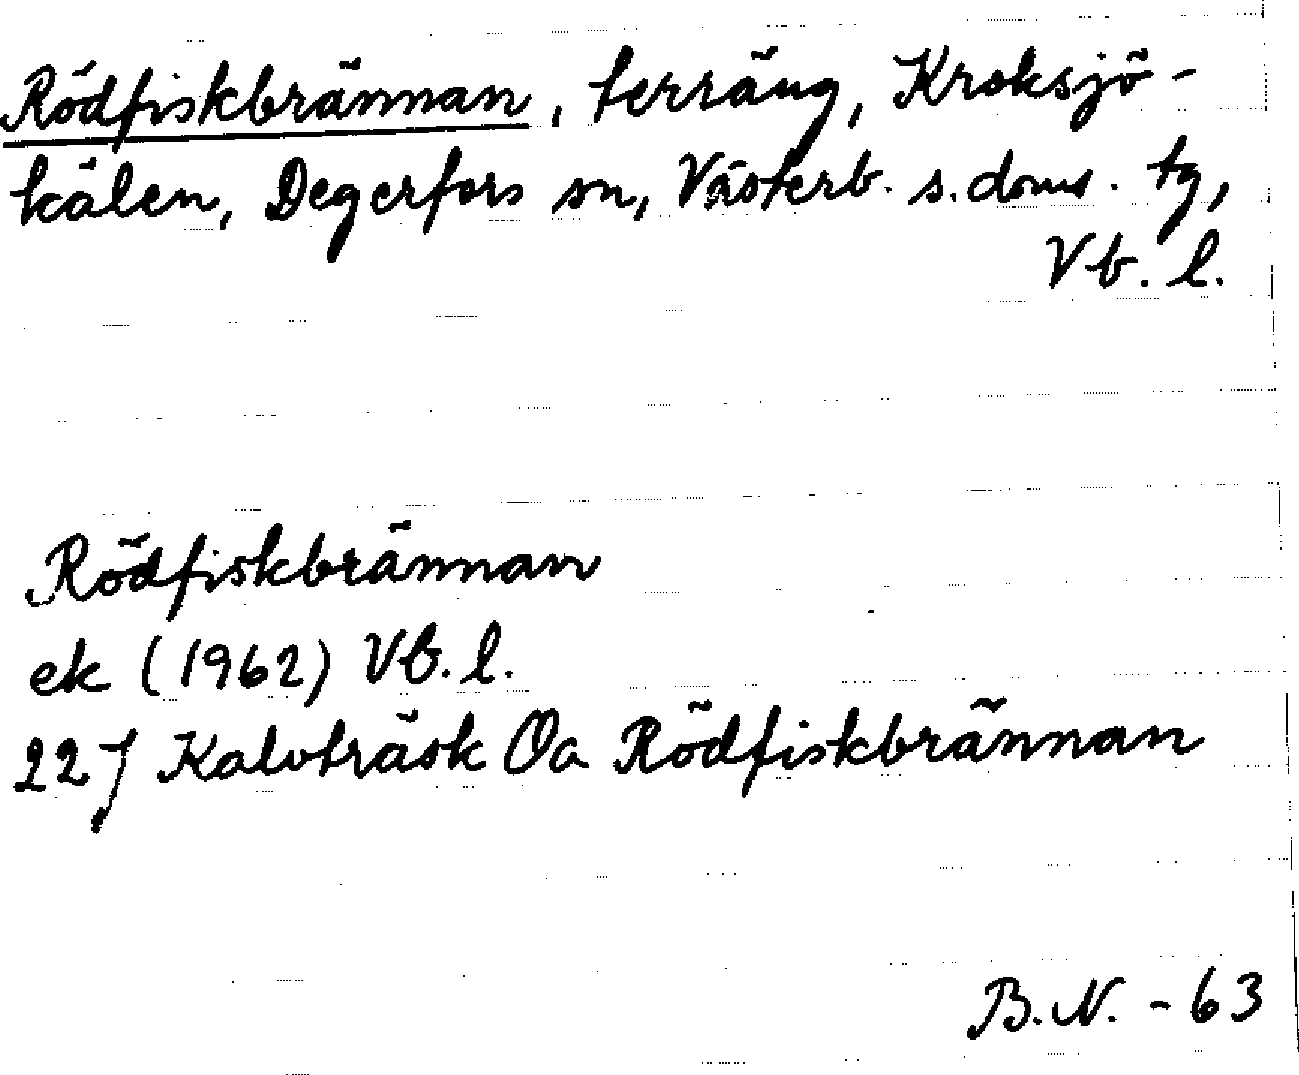 Rödfiskbrännan, terräng, Kroksjö-
kälen, Degerfors sn, Västerb. s. doms. tg,
Vb. l.
Rödfiskbrännan
ek (1962) Vb. l.
22 J Kalvträsk Oa Rödfiskbrännan
B.N. - 63